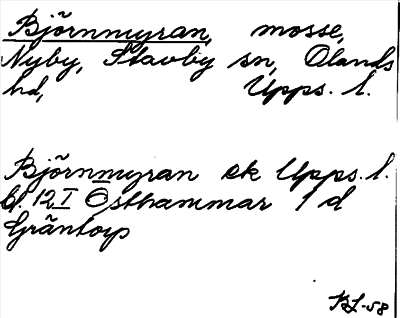 Björnmyran, mosse,
Nyby, Stavby sn, Olands
hd, Upps. l.
Björnmyran ek Upps. l.
bl. 12 I Östhammar 1 d
Gräntorp
KL-58